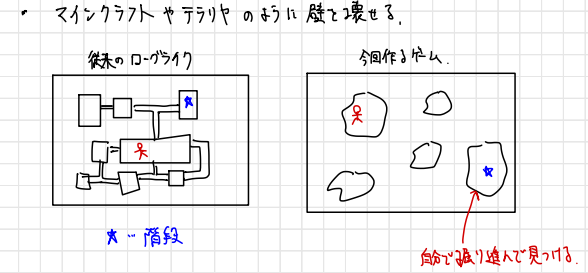 ・ マインクラフト や テラリヤ の ように 壁を 壊せる.
従来の ローグライク
今回作るゲーム.
★… 階段
自分で掘り進んで見つける.